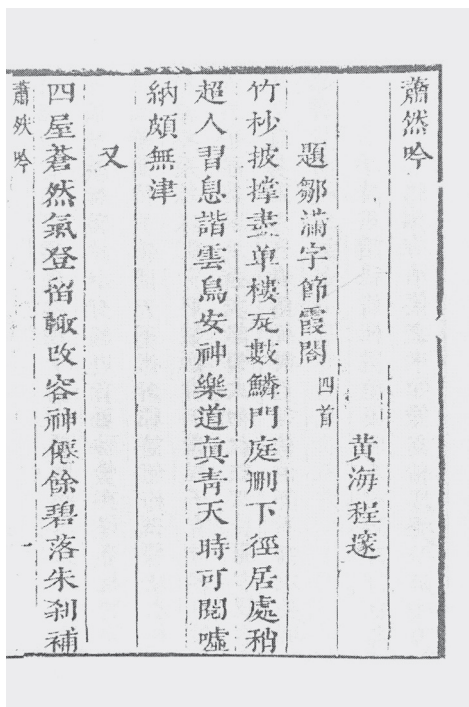 蕭然吟
黄海程邃
題鄒滿字節霞閣 四首
竹杪披撑盡草樓瓦數鱗門庭刪下徑居處稍
超人習息諧雲鳥安神樂道真青天時可閱噓
納頗無津
又
四屋蒼然氣登留輙改容神僊餘碧落朱刹補
蕭然吟
一